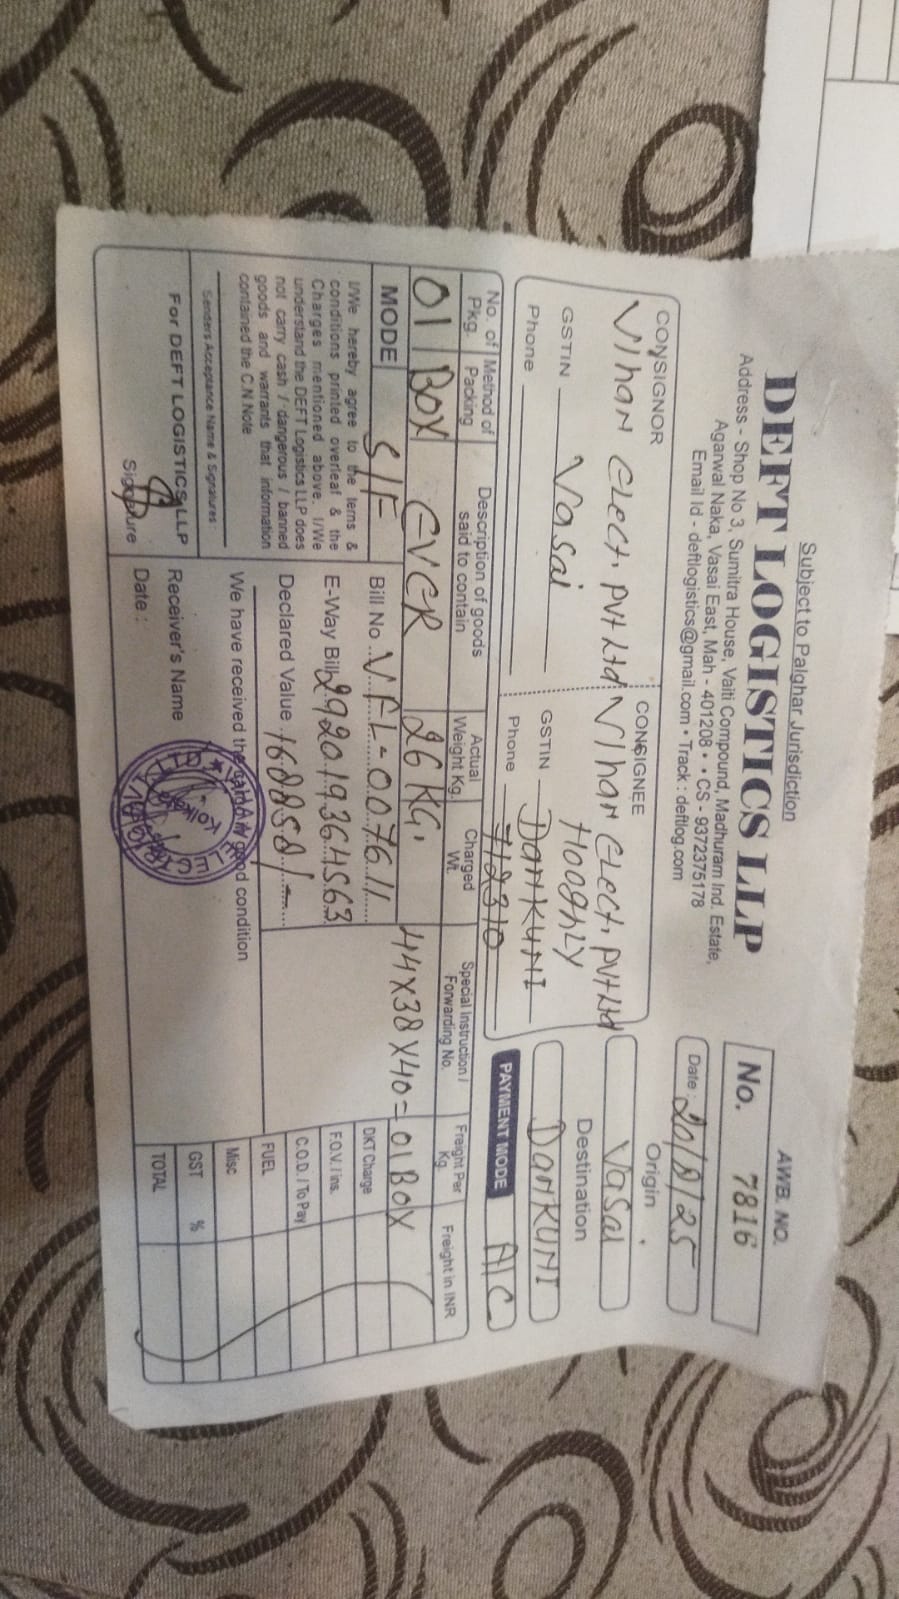 Subject to Palghar Jurisdiction
DEFT LOGISTICS LLP
Address - Shop No 3, Sumitra House, Vaiti Compound, Madhuram Ind. Estate,
Agarwal Naka, Vasai East, Mah - 401208 • • CS - 9372375178
Email Id - deftlogistics@gmail.com • Track : deftlog.com
AWB. NO.
No. 7816
Date : 20/8/25
CONSIGNOR
Vihan Elect. pvt Ltd
Vasai
GSTIN
Phone
CONSIGNEE
Vihan Elect. pvt Ltd
Hooghly
GSTIN DanKuni
Phone 712310
Origin
Vasai
Destination
DanKuni
PAYMENT MODE A/C
No. of Pkg. Method of Packing Description of goods said to contain Actual Weight Kg. Charged Wt. Special Instruction / Forwarding No. Freight Per Kg. Freight in INR
01 BOX EVER 26 KG. 44X38X40-01 BOX
MODE S/F
Bill No. VFL-007611
E-Way Bill 292019364563
Declared Value 168858/-
I/We hereby agree to the terns &
conditions printed overleaf & the
Charges mentioned above. I/We
understand the DEFT Logistics LLP does
not carry cash / dangerous / banned
goods and warrants that information
contained the C.N Note
Senders Acceptance Name & Signatures :
For DEFT LOGISTICS LLP
Signature
We have received the good condition
Receiver's Name
Date :
Kolkata
DKT Charge
F.O.V. / ins.
C.O.D. / To Pay
FUEL
Misc
GST %
TOTAL